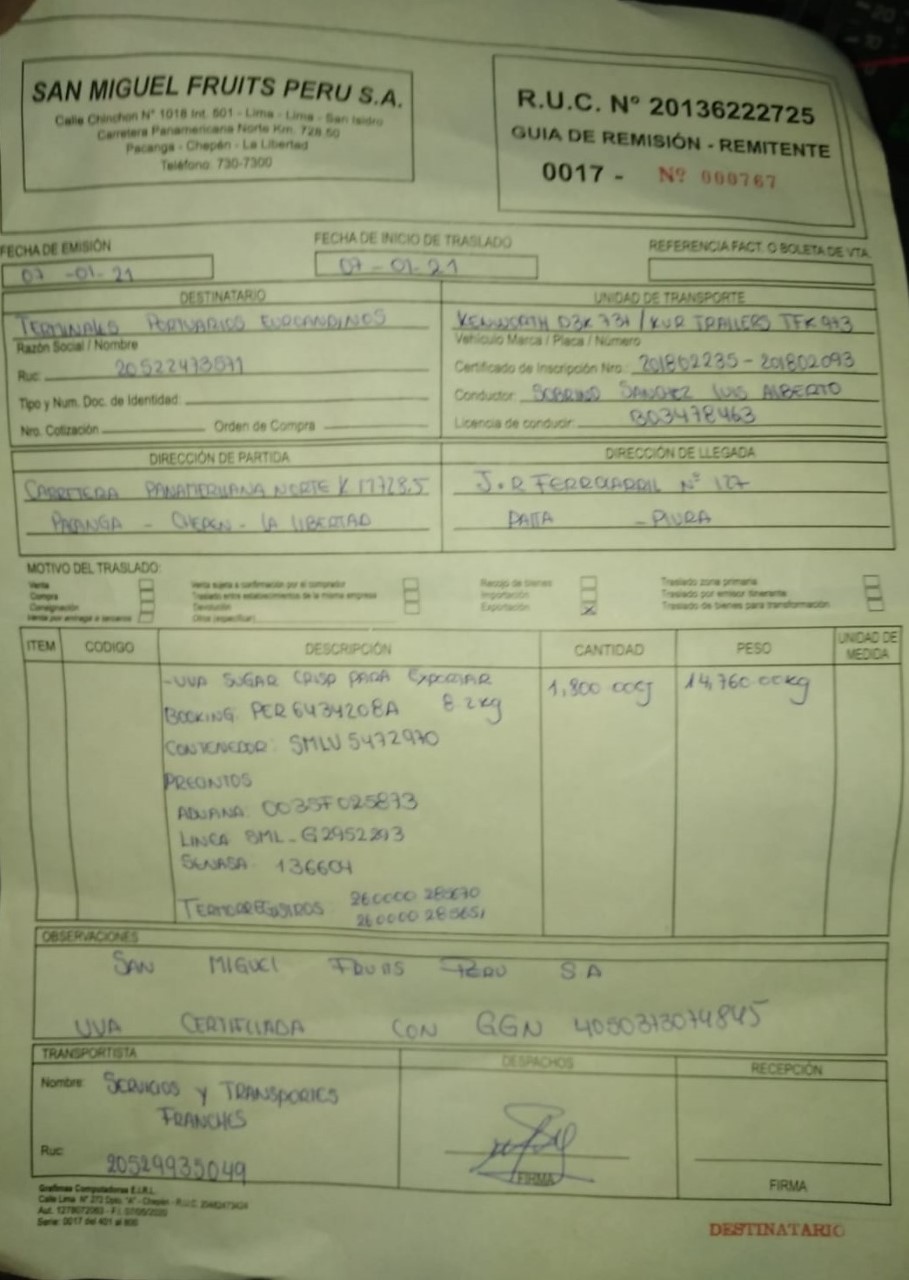 SAN MIGUEL FRUITS PERU S.A.
Calle Chinchon N° 1018 Int. 501 - Lima - Lima - San Isidro
Carretera Panamericana Norte Km. 728.50
Pacanga - Chepén - La Libertad
Teléfono: 730-7300
R.U.C. N° 20136222725
GUIA DE REMISIÓN - REMITENTE
0017 - Nº 000767
FECHA DE EMISIÓN
07 -01-21
FECHA DE INICIO DE TRASLADO
07-01-21
REFERENCIA FACT. O BOLETA DE VTA.
DESTINATARIO
TERMINALES PORTUARIOS EUROANDINOS
Razón Social / Nombre
Ruc: 20522473571
Tipo y Num. Doc. de Identidad
Nro. Cotización Orden de Compra
UNIDAD DE TRANSPORTE
KENWORTH D3K 731 / KUR TRAILERS TFK 973
Vehículo Marca / Placa / Número
Certificado de Inscripción Nro.: 201802235 - 201802093
Conductor: SOBRINO SANCHEZ LUIS ALBERTO
Licencia de conducir: B03478463
DIRECCIÓN DE PARTIDA
CARRETERA PANAMERICANA NORTE K M728.5
PACANGA - CHEPEN - LA LIBERTAD
DIRECCIÓN DE LLEGADA
J.R FERROCARRIL N° 127
PAITA - PIURA
MOTIVO DEL TRASLADO:
Venta
Compra
Consignación
Venta por entrega a terceros
Venta sujeta a confirmación por el comprador
Traslado entre establecimientos de la misma empresa
Devolución
Otros (especificar)
Recojo de bienes
Importación
Exportación X
Traslado zona primaria
Traslado por emisor itinerante
Traslado de bienes para transformación
ITEM CODIGO DESCRIPCIÓN CANTIDAD PESO UNIDAD DE MEDIDA
-UVA SUGAR CRISP PARA EXPORTAR 1,800 14,760.00kg
BOOKING: PER6434208A 8.2kg
CONTENEDOR: SMLU 5472970
PRECINTOS
ADUANA: 0035F025873
LINEA SML-G2952293
SENASA: 136604
TERMOREGISTROS: 260000 285670
260000 285651
OBSERVACIONES
SAN MIGUEL FRUITS PERU S A
UVA CERTIFICADA CON GGN 4050373074845
TRANSPORTISTA
Nombre: SERVICIOS Y TRANSPORTES
FRANCHES
Ruc: 20529935049
DESPACHOS
FIRMA
RECEPCIÓN
FIRMA
Grafimas Computadoras E.I.R.L.
Serie: 0017 del 401 al 800
DESTINATARIO